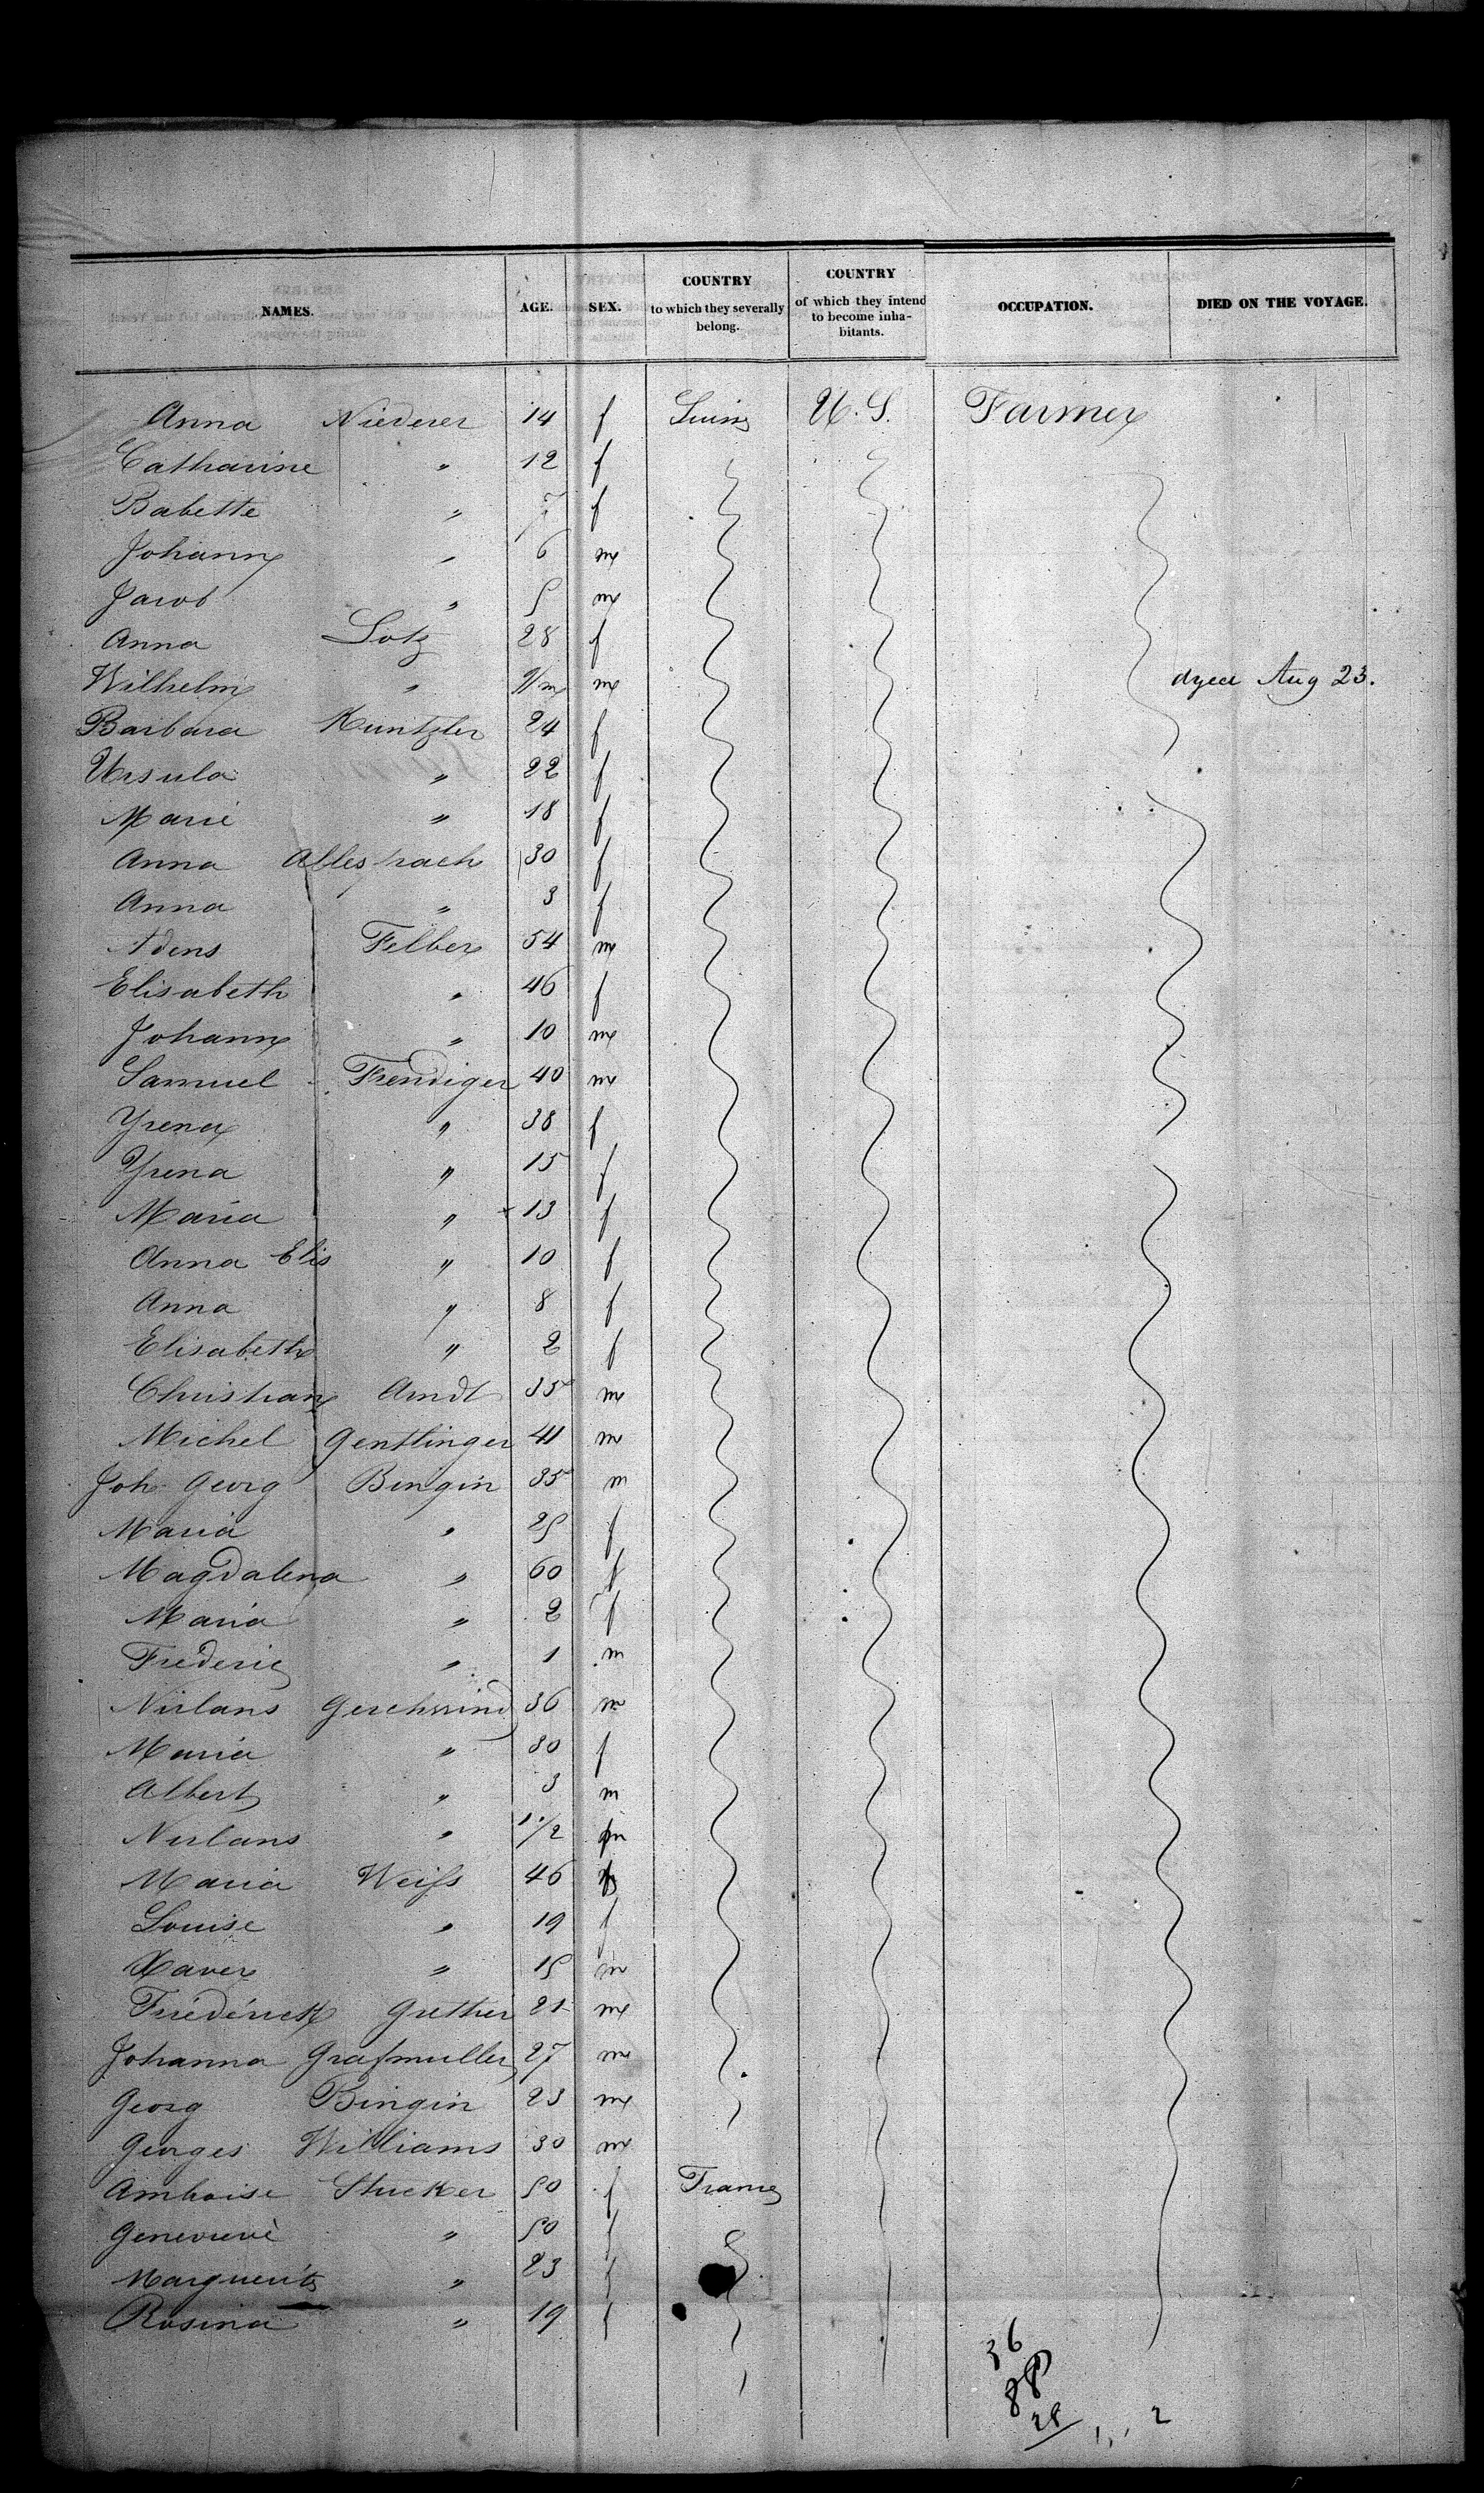 NAMES. AGE. SEX. COUNTRY to which they severally belong. COUNTRY of which they intend to become inhabitants. OCCUPATION. DIED ON THE VOYAGE.
Anna Niederer 14 f Suiss U.S. Farmer
Catharine " 12 f
Babette " 7 f
Johann " 6 m
Jacob " 5 m
Anna Lotz 28 f
Wilhelm " 9/m m dyed Aug 23.
Barbara Kuntzler 24 f
Ursula " 22 f
Marie " 18 f
Anna Allespach 30 f
Anna " 3 f
Felber 54 m
Elisabeth " 46 f
Johann " 10 m
Samuel Frendiger 40 m
Yrena " 38 f
Yrena " 15 f
Maria " 13 f
Anna Elis " 10 f
Anna " 8 f
Elisabeth " 2 f
Christian Arndt 35 m
Michel Gentlinger 41 m
Joh Georg Bingin 35 m
Maria " 25 f
Magdalena " 60 f
Maria " 2 f
Frederic " 1 m
Niclans Geschwind 36 m
Maria " 30 f
Albert " 3 m
Niclans " 1 1/2 m
Maria Weiss 46 f
Louise " 19 f
Xaver " 15 m
Friederick Grether 21 m
Johanna Grafmuller 27 m
Georg Bingin 23 m
Georges Williams 30 m
Amboise Stucker 50 f France
Genevieve " 50 f
Marguerite " 23 f
Rosina " 19 f
36
88
28
2